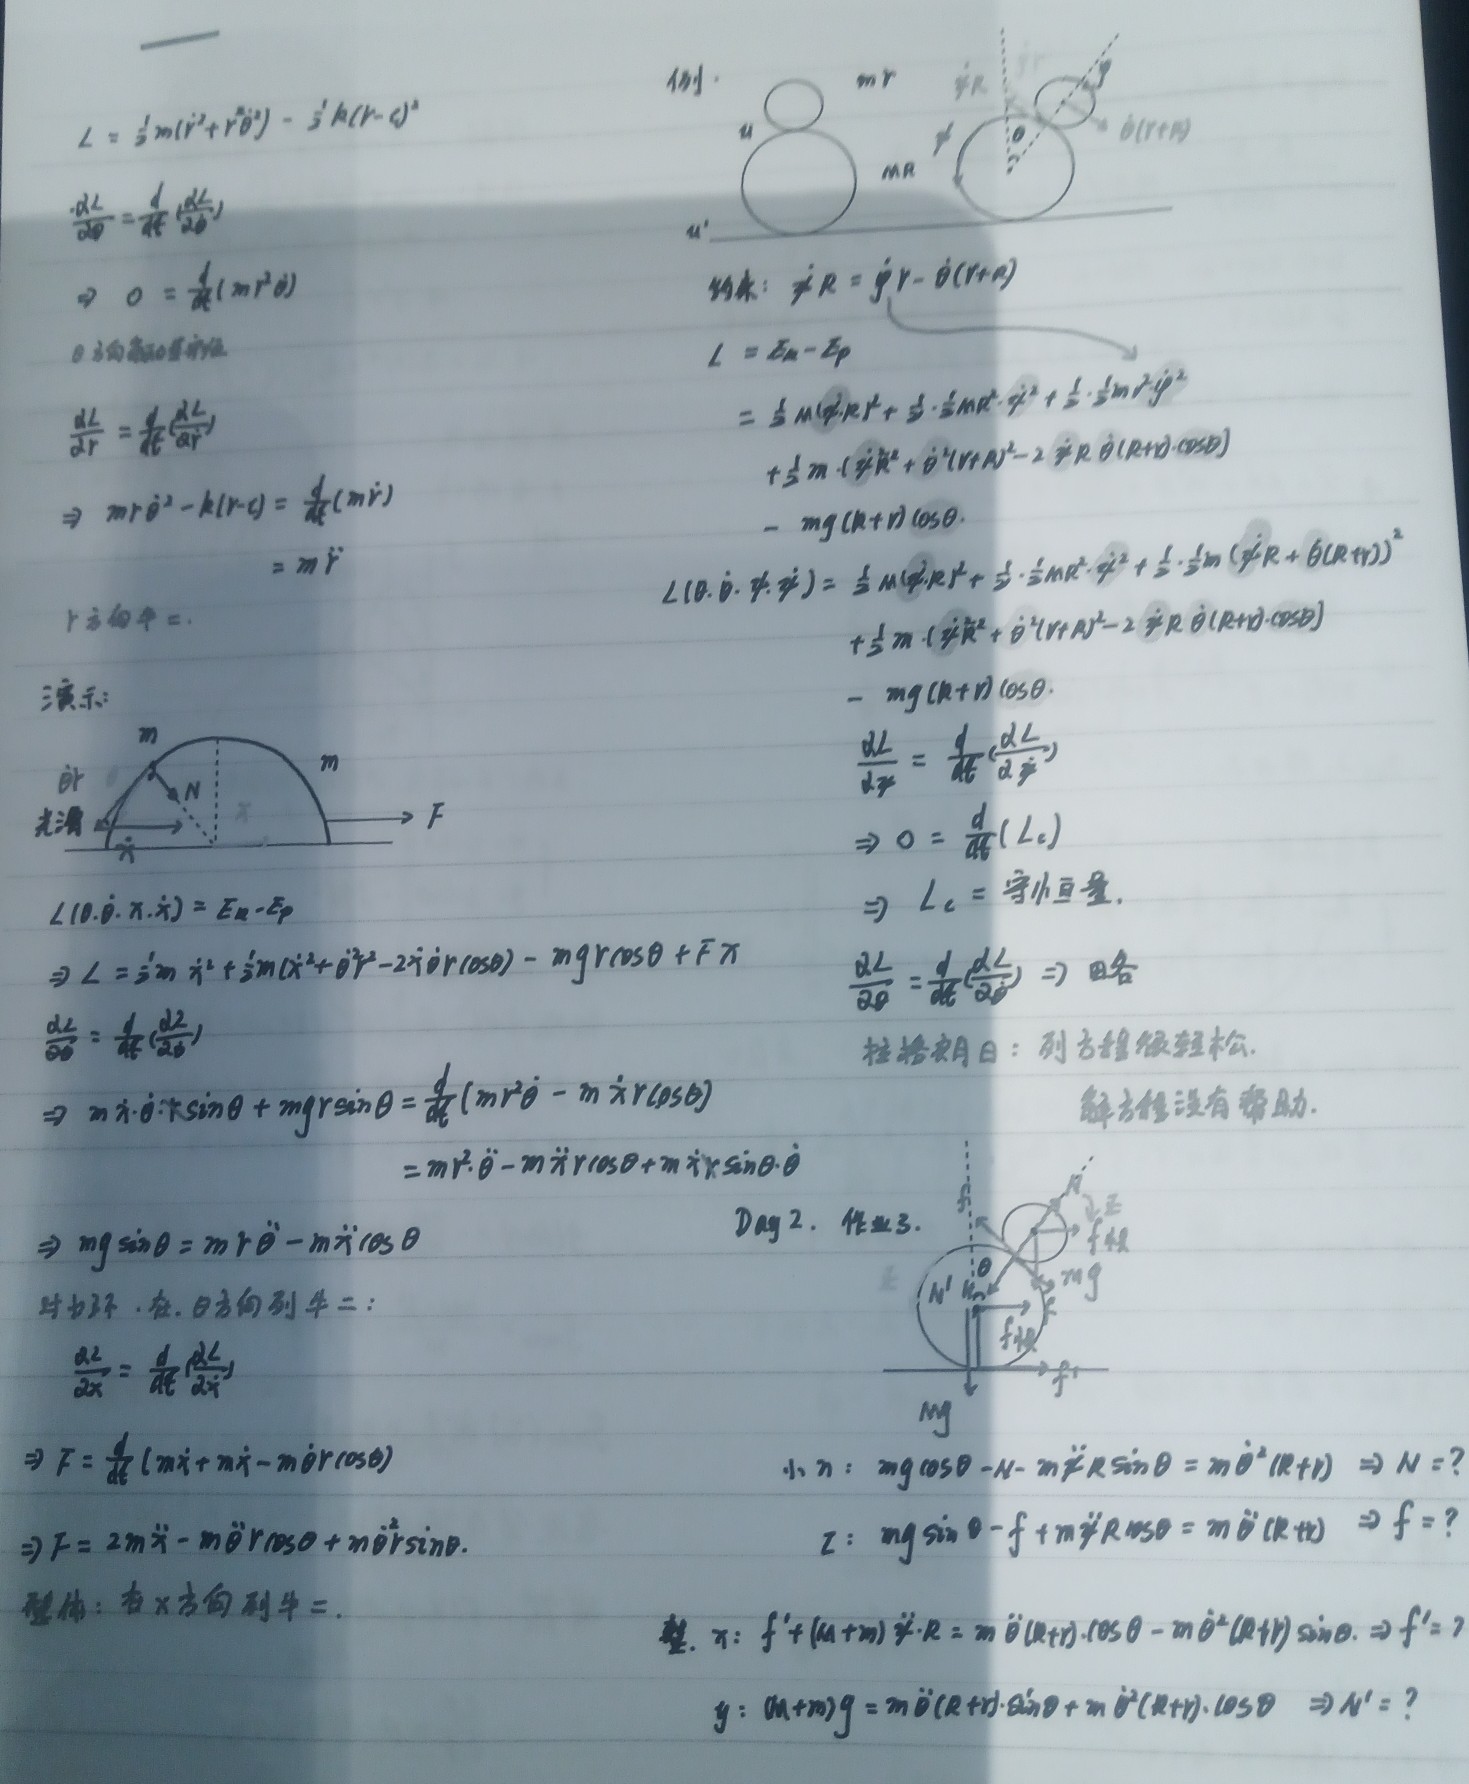 L = ½m(ṙ²+r²θ̇²) - ½k(r-c)²
∂L/∂θ = d/dt(∂L/∂θ̇)
⇒ 0 = d/dt(mr²θ̇)
θ方向角动量守恒
∂L/∂r = d/dt(∂L/∂ṙ)
⇒ mrθ̇² - k(r-c) = d/dt(mṙ)
= mr̈
r方向牛二.
演示:
m
m
θ̇r
N
光滑
F
ẋ
L(θ.θ̇.x.ẋ) = Ek-Ep
⇒ L = ½mẋ²+½m(ẋ²+θ̇²r²-2ẋθ̇rcosθ) - mgrcosθ + Fx
∂L/∂θ = d/dt(∂L/∂θ̇)
⇒ mẋ·θ̇·rsinθ + mgrsinθ = d/dt(mr²θ̇ - mẋrcosθ)
= mr²·θ̈ - mẍrcosθ + mẋrsinθ·θ̇
⇒ mgsinθ = mrθ̈ - mẍcosθ
对小环.在.θ方向列牛二:
∂L/∂x = d/dt(∂L/∂ẋ)
⇒ F = d/dt(mẋ+mẋ-mθ̇rcosθ)
⇒ F = 2mẍ - mθ̈rcosθ + mθ̇²rsinθ.
整体: 在x方向列牛二.
例.
m r
u
MR
u'
ψ̇R
φ
θ
ψ̇
θ̇(r+R)
约束: ψ̇R = φ̇r - θ̇(r+R)
L = Ek-Ep
= ½M(ψ̇·R)² + ½·½MR²·ψ̇² + ½·½mr²·φ̇²
+½m·(ψ̇²R²+θ̇²(r+R)²-2ψ̇Rθ̇(R+r)·cosθ)
- mg(R+r)cosθ.
L(θ.θ̇.ψ.ψ̇) = ½M(ψ̇·R)² + ½·½MR²·ψ̇² + ½·½m(ψ̇R+θ̇(R+r))²
+½m·(ψ̇²R²+θ̇²(r+R)²-2ψ̇Rθ̇(R+r)·cosθ)
- mg(R+r)cosθ.
∂L/∂ψ = d/dt(∂L/∂ψ̇)
⇒ 0 = d/dt(Lc)
⇒ Lc = 守恒量.
∂L/∂θ = d/dt(∂L/∂θ̇) ⇒ 略
拉格朗日: 列方程很轻松.
解方程没有帮助.
Day2. 作业3.
f
N
τ
f惯
mg
θ
N'
f惯
f'
Mg
小n: mgcosθ - N - mψ̈Rsinθ = mθ̇²(R+r) ⇒ N = ?
τ: mgsinθ - f + mψ̈Rcosθ = mθ̈(R+r) ⇒ f = ?
整. x: f'+(M+m)ψ̈·R = mθ̈(R+r)·cosθ - mθ̇²(R+r)sinθ. ⇒ f' = ?
y: (M+m)g = mθ̈(R+r)·sinθ + mθ̇²(R+r)·cosθ ⇒ N' = ?